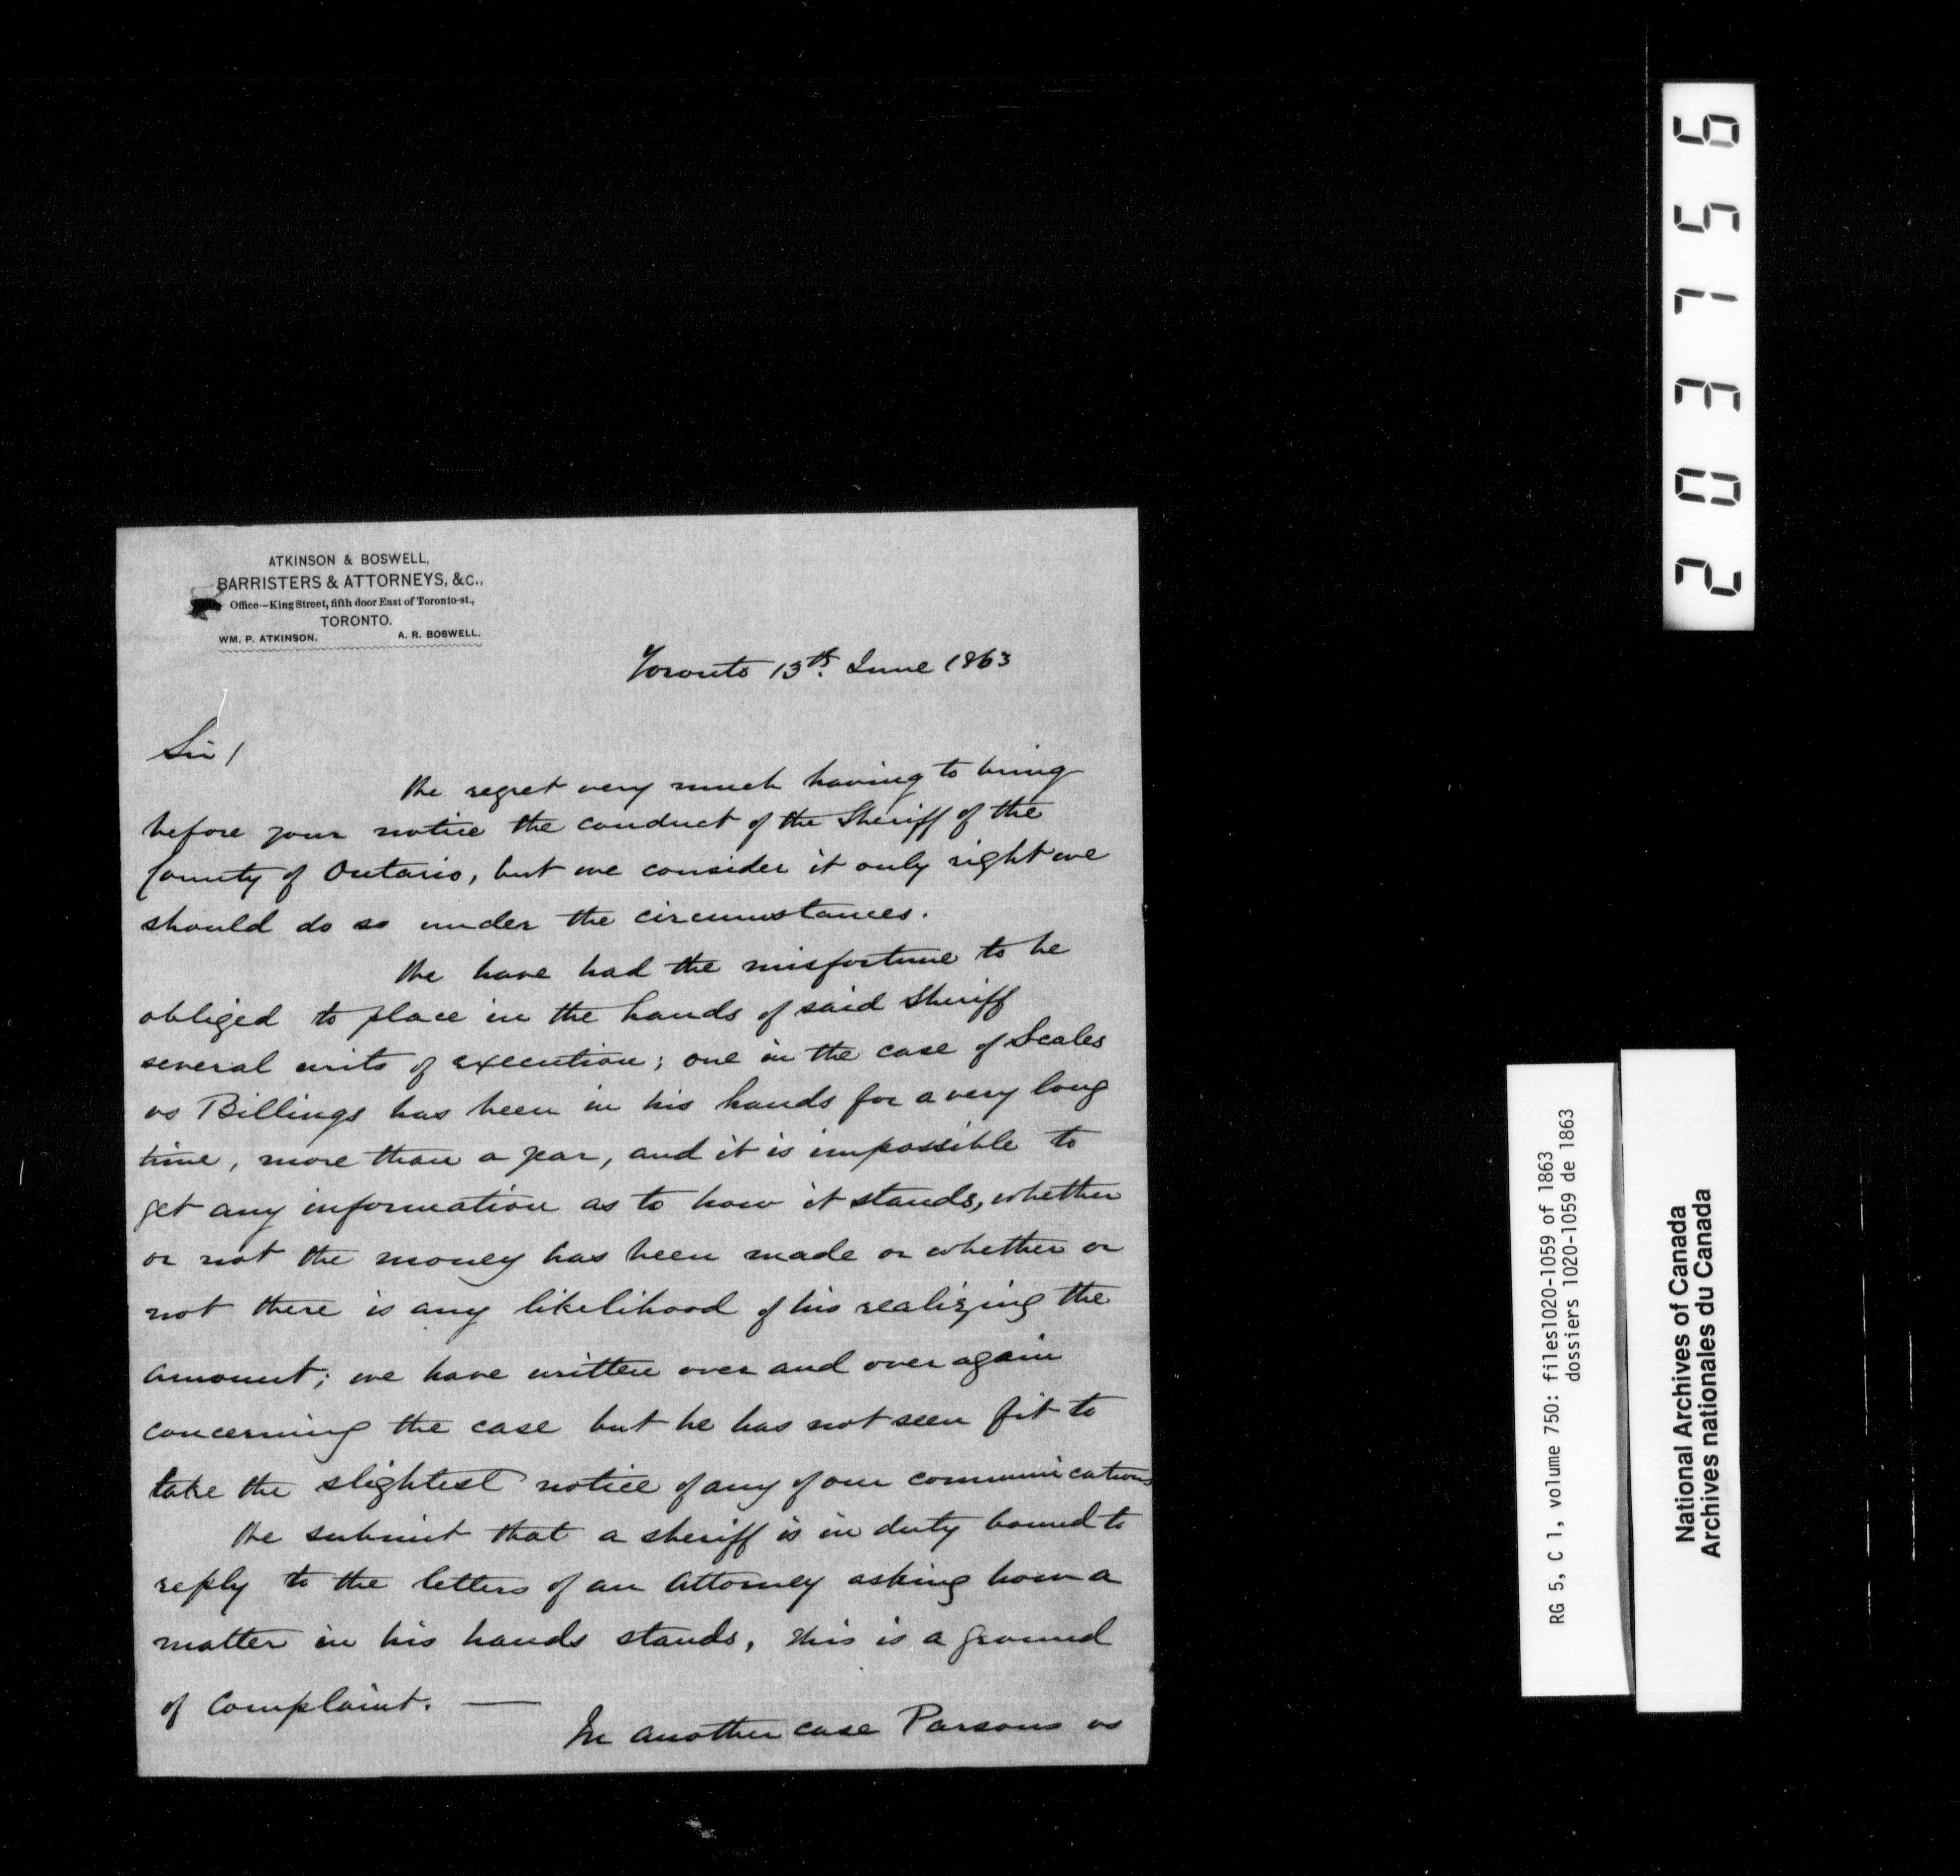 ATKINSON & BOSWELL,
BARRISTERS & ATTORNEYS, &C.,
Office—King Street, fifth door East of Toronto-st.,
TORONTO.
WM. P. ATKINSON. A. R. BOSWELL.
Toronto 13th. June 1863
Sir /
We regret very much having to bring
before your notice the conduct of the Sheriff of the
County of Ontario, but we consider it only right we
should do so under the circumstances.
We have had the misfortune to be
obliged to place in the hands of said Sheriff
several writs of execution; one in the case of Scales
vs Billings has been in his hands for a very long
time, more than a year, and it is impossible to
get any information as to how it stands, whether
or not the money has been made or whether or
not there is any likelihood of his realizing the
amount; we have written over and over again
concerning the case but he has not seen fit to
take the slightest notice of any of our communications
We submit that a sheriff is in duty bound to
reply to the letters of an Attorney asking how a
matter in his hands stands, this is a ground
of complaint. —
In another case Parsons vs
203756
RG 5, C 1, volume 750: files1020-1059 of 1863
dossiers 1020-1059 de 1863
National Archives of Canada
Archives nationales du Canada